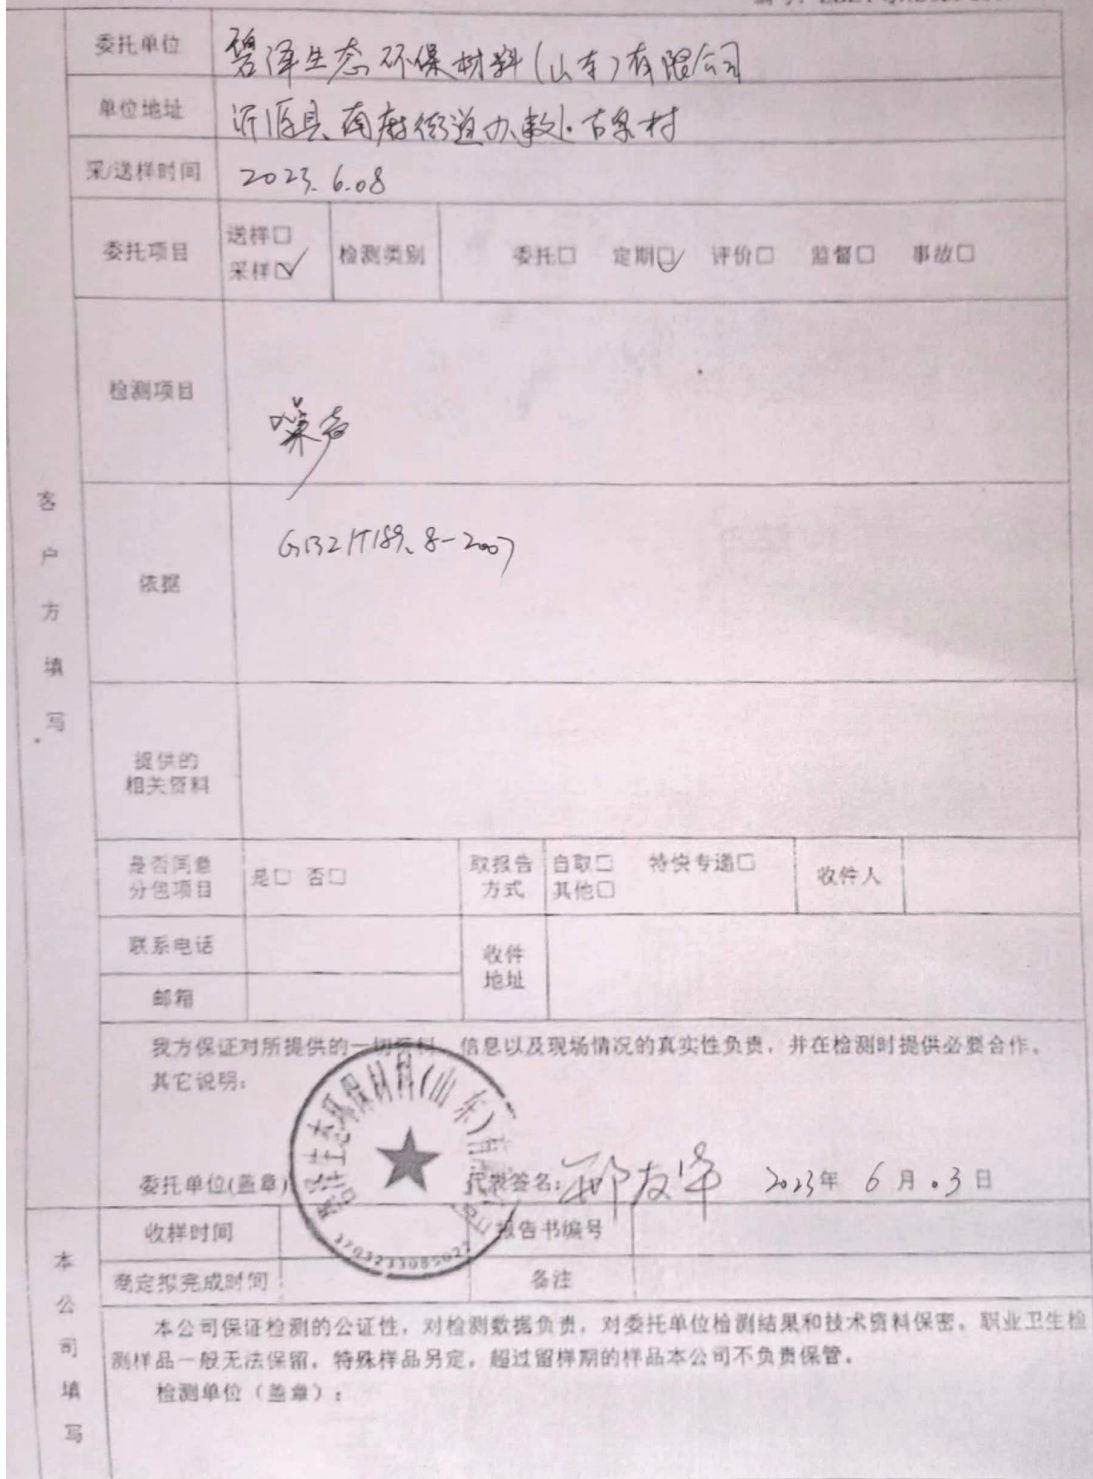 委托单位 碧泽生态环保材料(山东)有限公司
单位地址 沂源县南麻街道办事处古泉村
采/送样时间 2023.6.08
委托项目 送样□ 采样☑ 检测类别 委托□ 定期☑ 评价□ 监督□ 事故□
检测项目 噪声
客户方填写
依据 GBZ/T189.8-2007
提供的
相关资料
是否同意
分包项目 是□ 否□
取报告
方式 自取□ 特快专递□
其他□
收件人
联系电话
收件
地址
邮箱
我方保证对所提供的一切资料、信息以及现场情况的真实性负责，并在检测时提供必要合作。
其它说明：
碧泽生态环保材料(山东)有限公司
委托单位(盖章) 代表签名: 邢友华 2023年 6月.3日
3703233085022
收样时间 报告书编号
商定拟完成时间 备注
本公司填写
本公司保证检测的公证性，对检测数据负责，对委托单位检测结果和技术资料保密。职业卫生检
测样品一般无法保留，特殊样品另定，超过留样期的样品本公司不负责保管。
检测单位（盖章）：